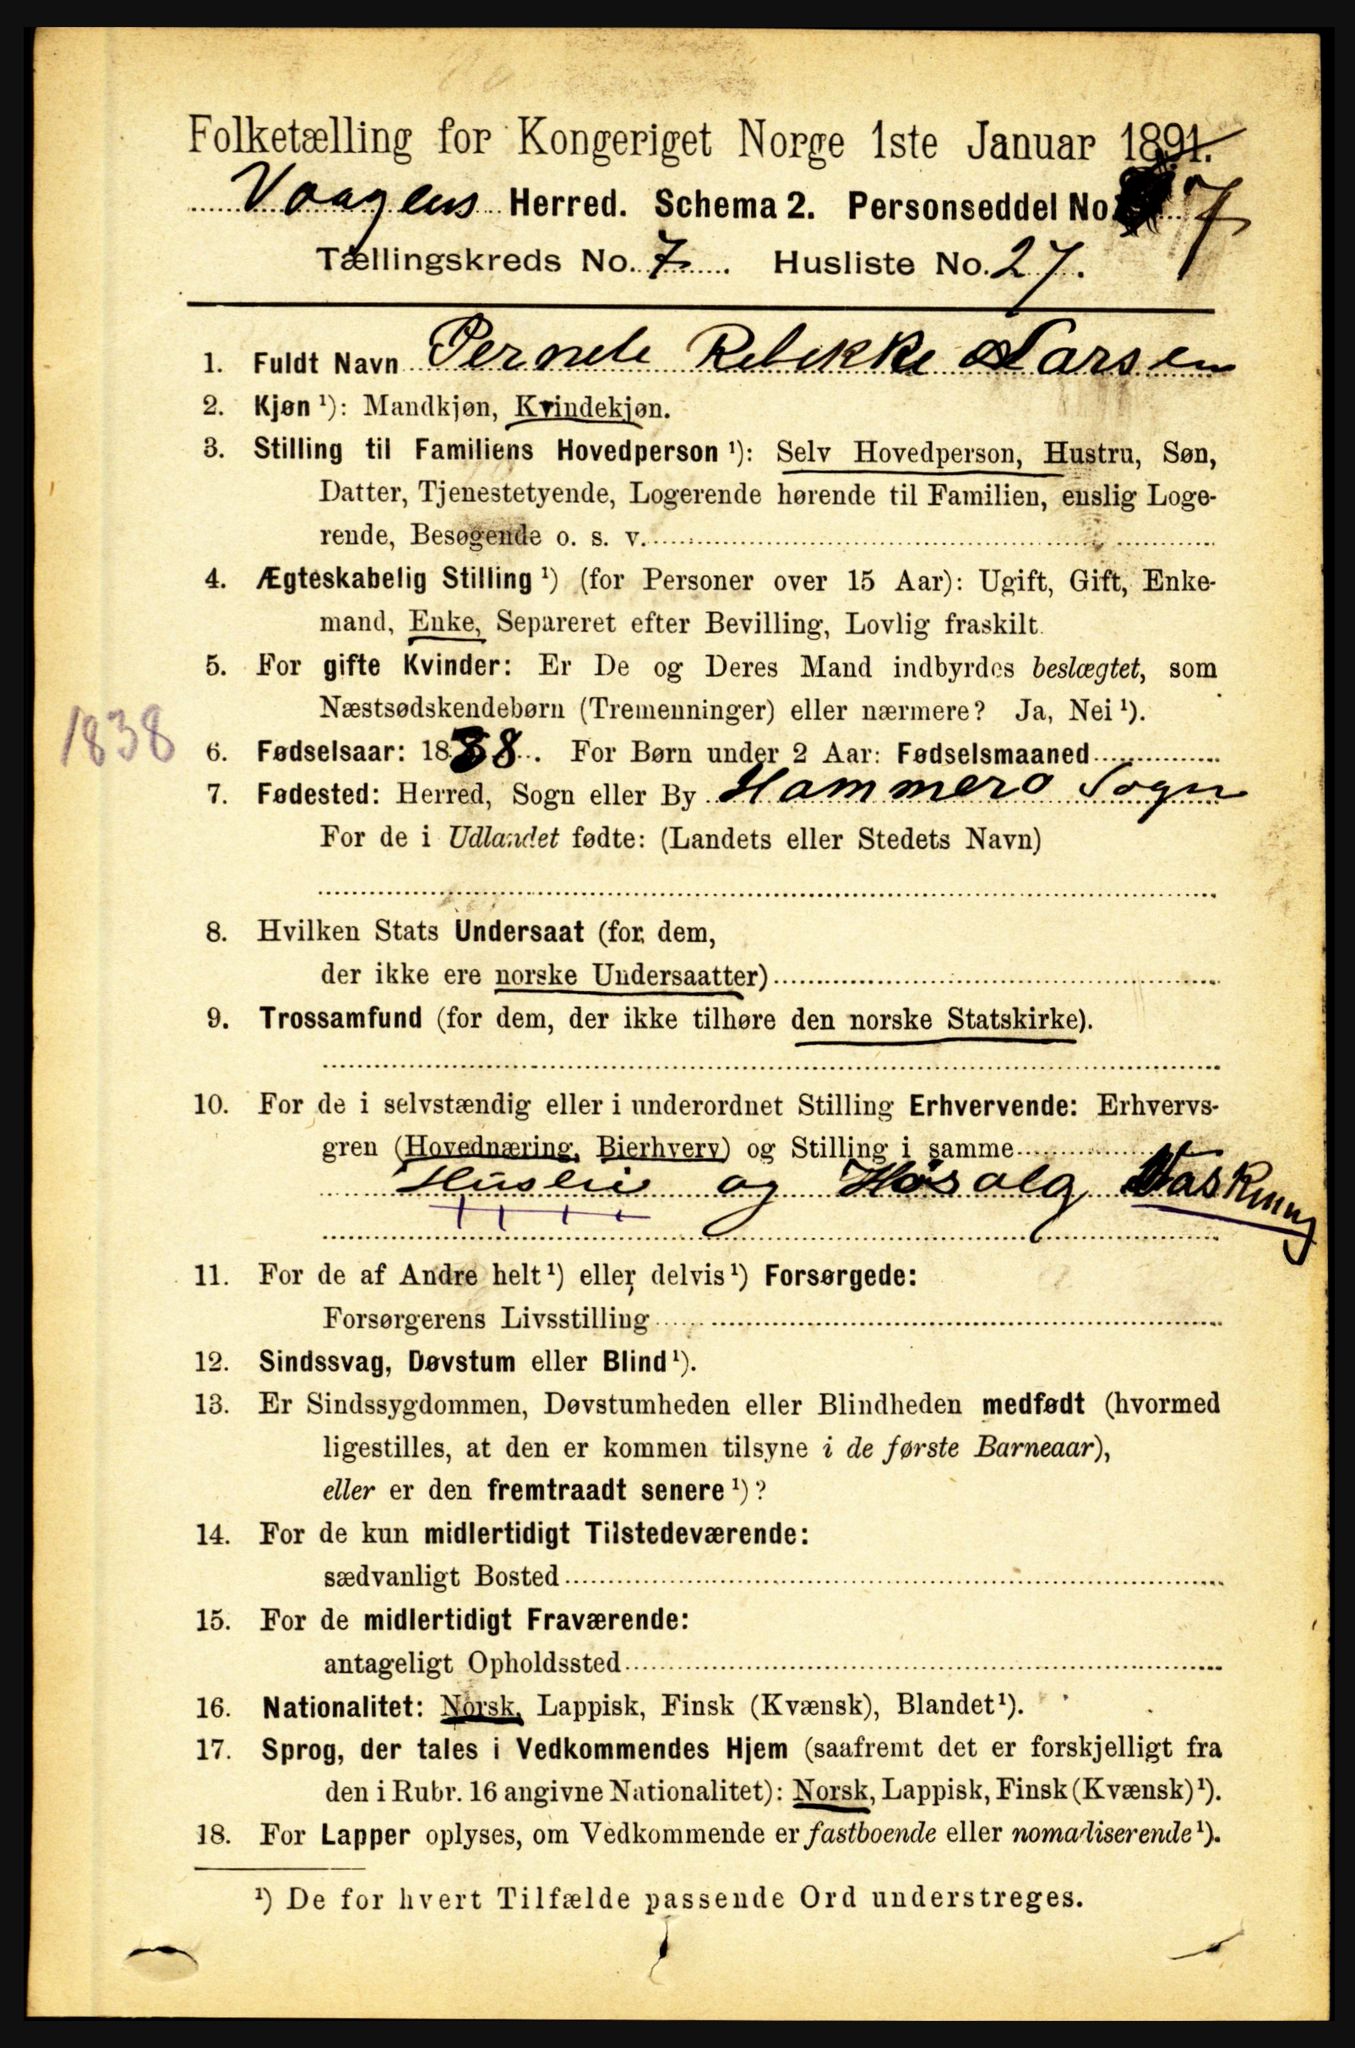 Folketælling for Kongeriget Norge 1ste Januar 1891.
Vaagens Herred. Schema 2. Personseddel No. 7
Tællingskreds No. 7. Husliste No. 27.
1. Fuldt Navn Pernele Rebekke Larsen
2. Kjøn ¹): Mandkjøn, Kvindekjøn.
3. Stilling til Familiens Hovedperson ¹): Selv Hovedperson, Hustru, Søn,
Datter, Tjenestetyende, Logerende hørende til Familien, enslig Loge-
rende, Besøgende o. s. v.
4. Ægteskabelig Stilling ¹) (for Personer over 15 Aar): Ugift, Gift, Enke-
mand, Enke, Separeret efter Bevilling, Lovlig fraskilt.
5. For gifte Kvinder: Er De og Deres Mand indbyrdes beslægtet, som
Næstsødskendebørn (Tremenninger) eller nærmere? Ja, Nei ¹).
1838
6. Fødselsaar: 1838. For Børn under 2 Aar: Fødselsmaaned
7. Fødested: Herred, Sogn eller By Hammerø Sogn
For de i Udlandet fødte: (Landets eller Stedets Navn)
8. Hvilken Stats Undersaat (for dem,
der ikke ere norske Undersaatter)
9. Trossamfund (for dem, der ikke tilhøre den norske Statskirke).
10. For de i selvstændig eller i underordnet Stilling Erhvervende: Erhvervs-
gren (Hovednæring, Bierhverv) og Stilling i samme
Husleie og Høsalg Vaskning
11. For de af Andre helt ¹) eller delvis ¹) Forsørgede:
Forsørgerens Livsstilling
12. Sindssvag, Døvstum eller Blind ¹).
13. Er Sindssygdommen, Døvstumheden eller Blindheden medfødt (hvormed
ligestilles, at den er kommen tilsyne i de første Barneaar),
eller er den fremtraadt senere ¹)?
14. For de kun midlertidigt Tilstedeværende:
sædvanligt Bosted
15. For de midlertidigt Fraværende:
antageligt Opholdssted
16. Nationalitet: Norsk, Lappisk, Finsk (Kvænsk), Blandet ¹).
17. Sprog, der tales i Vedkommendes Hjem (saafremt det er forskjelligt fra
den i Rubr. 16 angivne Nationalitet): Norsk, Lappisk, Finsk (Kvænsk) ¹).
18. For Lapper oplyses, om Vedkommende er fastboende eller nomadiserende ¹).
¹) De for hvert Tilfælde passende Ord understreges.